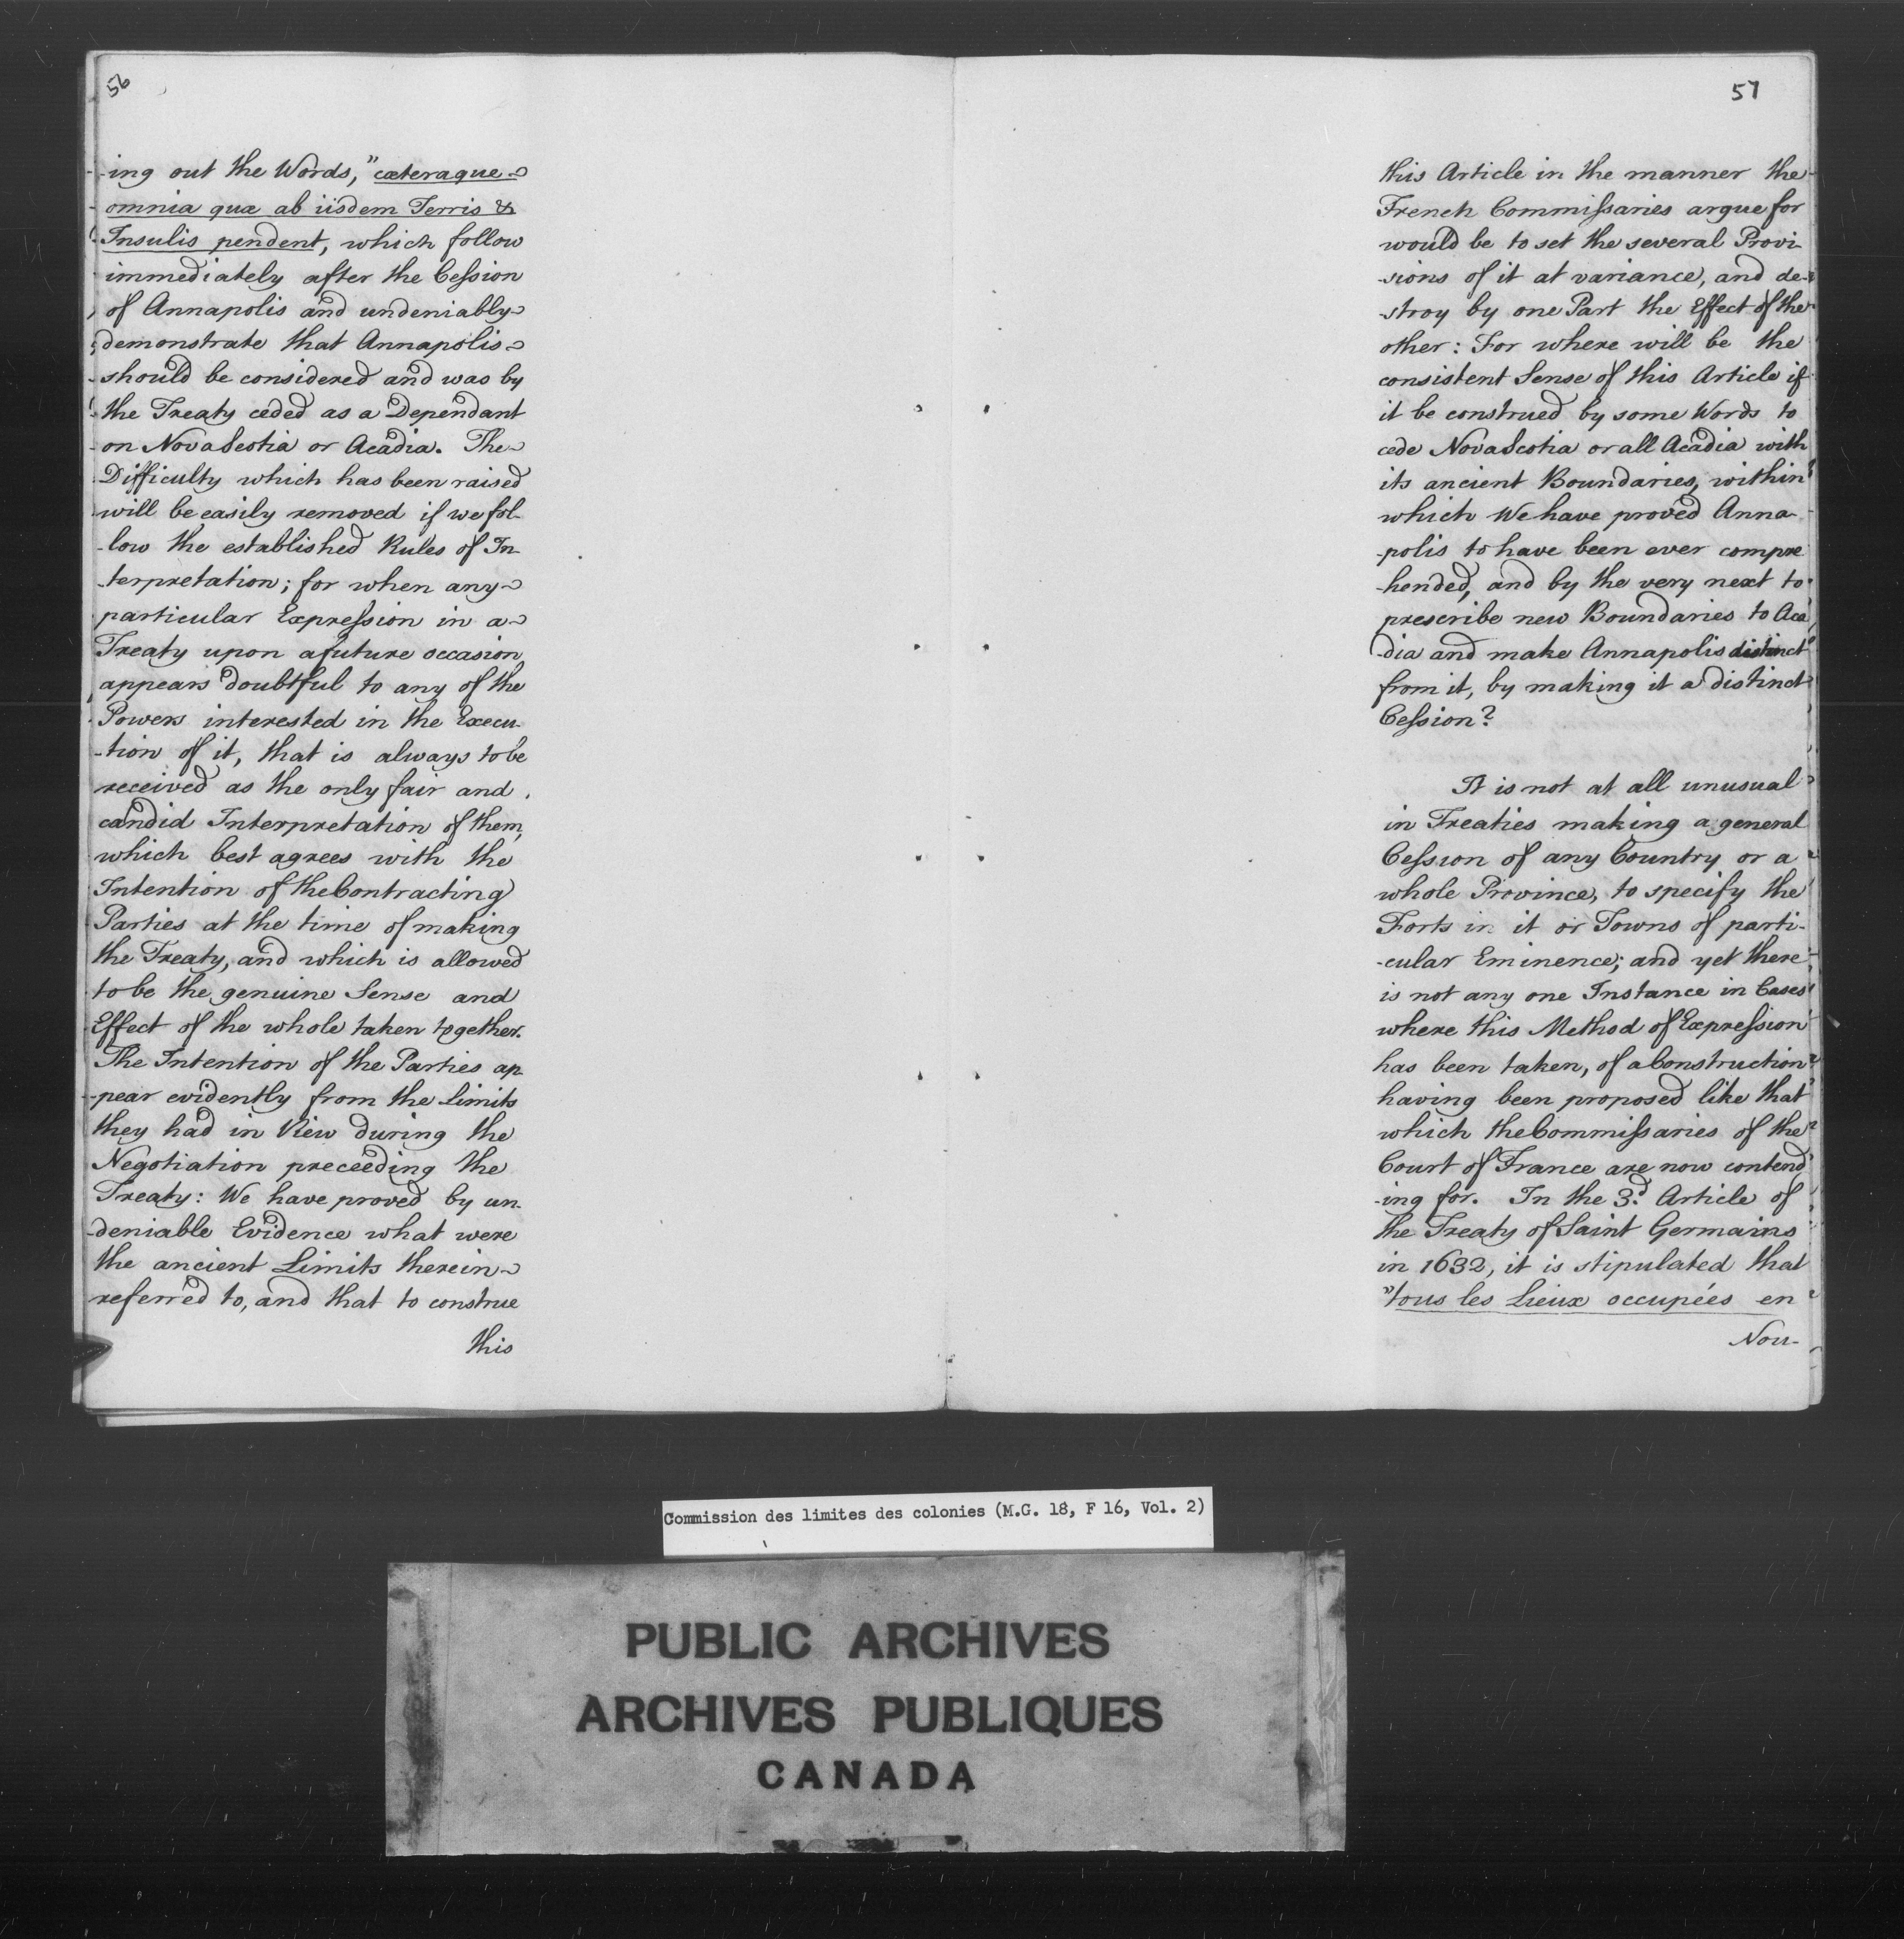 56
-ing out the Words, "cæteraque
omnia quæ ab iisdem Terris &
Insulis pendent, which follow
immediately after the Cession
of Annapolis and undeniably
demonstrate that Annapolis
should be considered and was by
the Treaty ceded as a Dependant
on Nova Scotia or Acadia. The
Difficulty which has been raised
will be easily removed if we fol-
-low the established Rules of In-
-terpretation; for when any
particular Expression in a
Treaty upon a future occasion
appears doubtful to any of the
Powers interested in the Execu-
-tion of it, that is always to be
received as the only fair and
candid Interpretation of them,
which best agrees with the
Intention of the Contracting
Parties at the time of making
the Treaty, and which is allowed
to be the genuine Sense and
Effect of the whole taken together.
The Intention of the Parties ap-
-pear evidently from the Limits
they had in View during the
Negotiation preceeding the
Treaty: We have proved by un-
-deniable Evidence what were
the ancient Limits therein
referred to, and that to construe
this
57
this Article in the manner the
French Commissaries argue for
would be to set the several Provi-
-sions of it at variance, and de-
-stroy by one Part the Effect of the
other: For where will be the
consistent Sense of this Article if
it be construed by some Words to
cede Nova Scotia or all Acadia with
its ancient Boundaries, within
which We have proved Anna-
-polis to have been ever compre
-hended, and by the very next to
prescribe new Boundaries to Aca
-dia and make Annapolis distinct
from it, by making it a distinct
Cession?
It is not at all unusual
in Treaties making a general
Cession of any Country or a
whole Province, to specify the
Forts in it or Towns of parti-
-cular Eminence; and yet there
is not any one Instance in Cases
where this Method of Expression
has been taken, of a Construction
having been proposed like that
which the Commissaries of the
Court of France are now contend
-ing for. In the 3.d Article of
the Treaty of Saint Germains
in 1632, it is stipulated that
"tous les Lieux occupées en
Nou-
Commission des limites des colonies (M.G. 18, F 16, Vol. 2)
PUBLIC ARCHIVES
ARCHIVES PUBLIQUES
CANADA